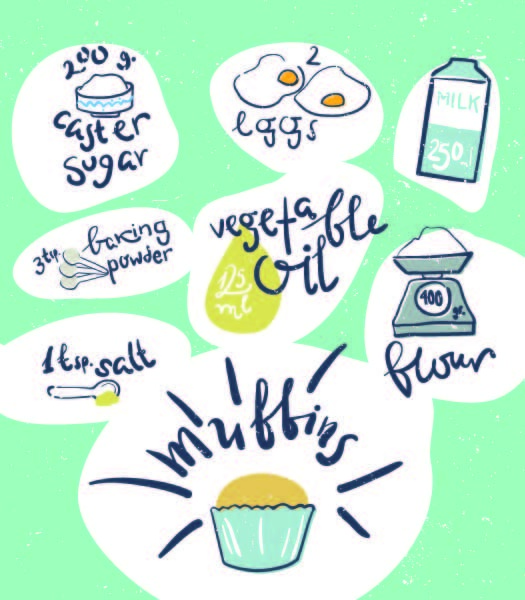 200 g.
caster
sugar
2
eggs
MILK
250
3 tsp.
baking
powder
vegetable
oil
125
ml
400
gr.
flour
1 tsp. salt
muffins